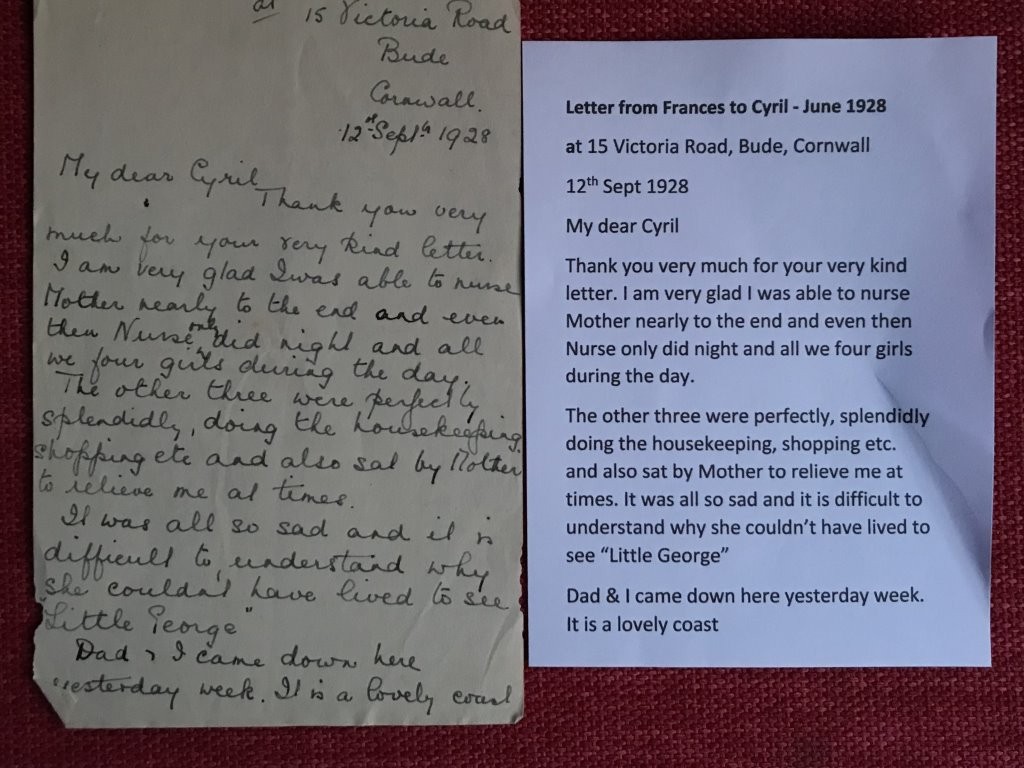 at 15 Victoria Road
Bude
Cornwall.
12th Septh 1928
My dear Cyril
Thank you very
much for your very kind letter.
I am very glad I was able to nurse
Mother nearly to the end and even
then Nurse only did night and all
we four girls during the day.
The other three were perfectly
splendidly, doing the housekeeping
shopping etc and also sat by Mother
to relieve me at times.
It was all so sad and it is
difficult to understand why
she couldn't have lived to see
"Little George"
Dad & I came down here
yesterday week. It is a lovely coast
Letter from Frances to Cyril - June 1928
at 15 Victoria Road, Bude, Cornwall
12th Sept 1928
My dear Cyril
Thank you very much for your very kind
letter. I am very glad I was able to nurse
Mother nearly to the end and even then
Nurse only did night and all we four girls
during the day.
The other three were perfectly, splendidly
doing the housekeeping, shopping etc.
and also sat by Mother to relieve me at
times. It was all so sad and it is difficult to
understand why she couldn't have lived to
see “Little George”
Dad & I came down here yesterday week.
It is a lovely coast